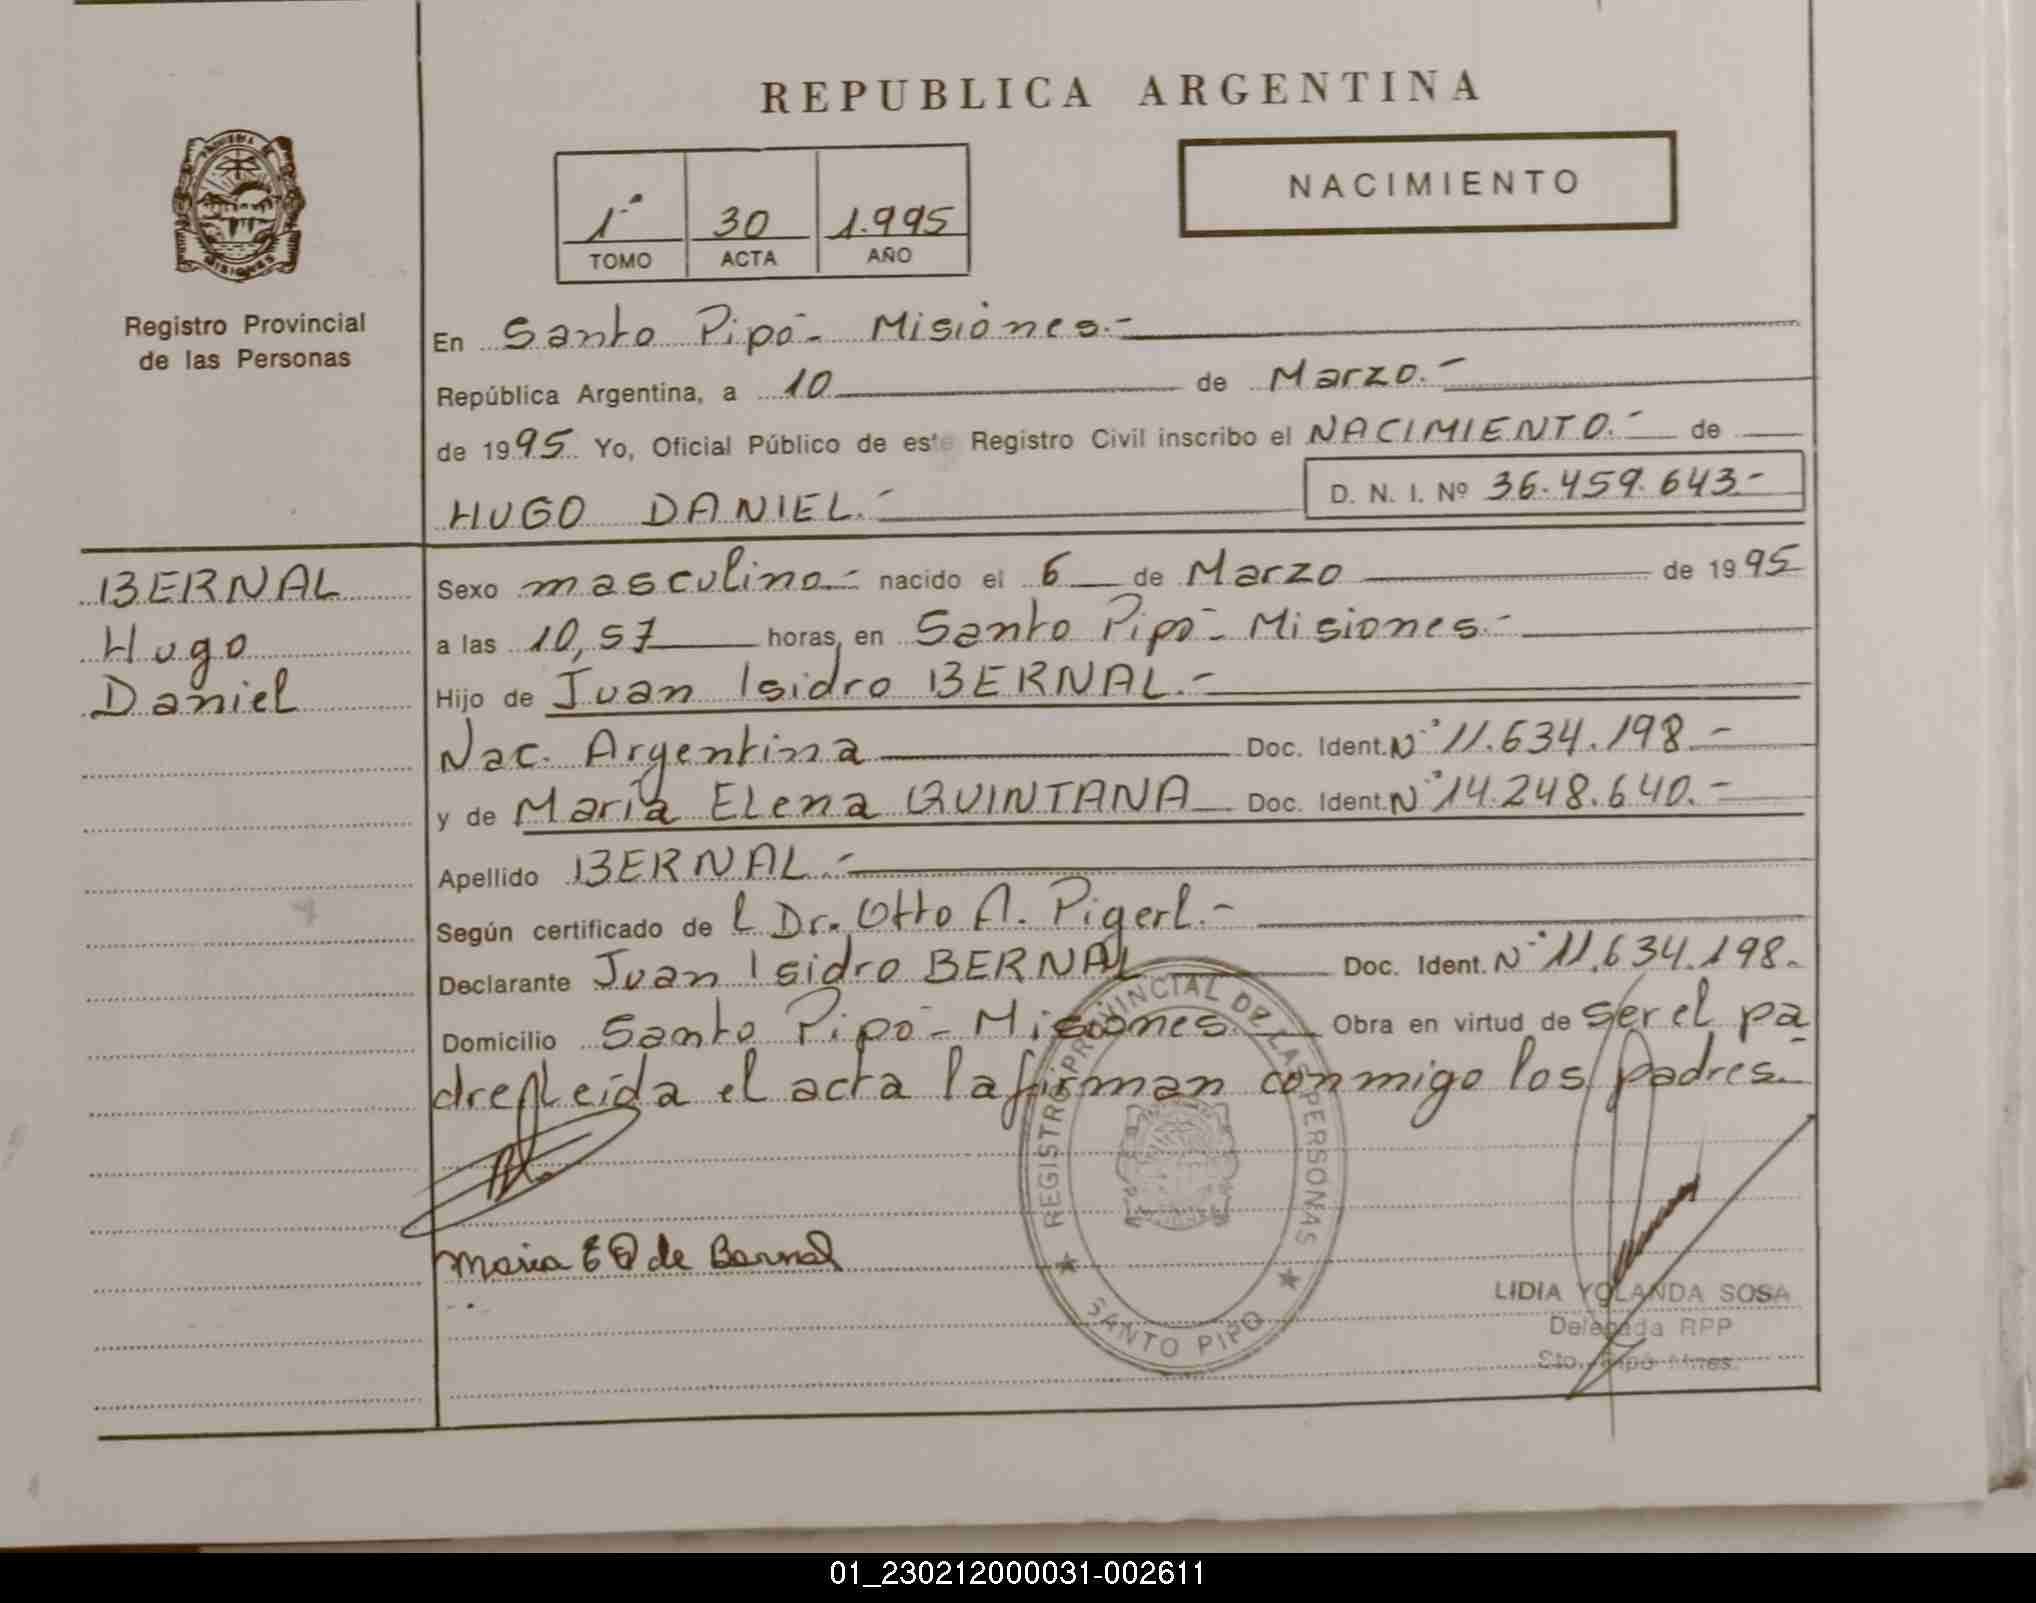 REPUBLICA ARGENTINA
NACIMIENTO
1º 30 1.995
TOMO ACTA AÑO
MISIONES
Registro Provincial
de las Personas
En Santo Pipó - Misiones.-
República Argentina, a 10 de Marzo.-
de 1995 Yo, Oficial Público de este Registro Civil inscribo el NACIMIENTO.- de
HUGO DANIEL.- D. N. I. Nº 36.459.643.-
BERNAL
Hugo
Daniel
Sexo masculino.- nacido el 6 de Marzo de 1995
a las 10,57 horas, en Santo Pipó - Misiones.-
Hijo de Juan Isidro BERNAL.-
Nac. Argentina Doc. Ident. Nº 11.634.198.-
y de María Elena QUINTANA Doc. Ident. Nº 14.248.640.-
Apellido BERNAL.-
Según certificado de l Dr. Otto A. Pigerl.-
Declarante Juan Isidro BERNAL Doc. Ident. Nº 11.634.198.
Domicilio Santo Pipó - Misiones. Obra en virtud de ser el pa
dre Leída el acta la firman conmigo los padres.
REGISTRO PROVINCIAL DE LAS PERSONAS
SANTO PIPO
Maria E Q de Bernal
LIDIA YOLANDA SOSA
Delegada RPP
Sto. Pipó Mnes.
01_230212000031-002611